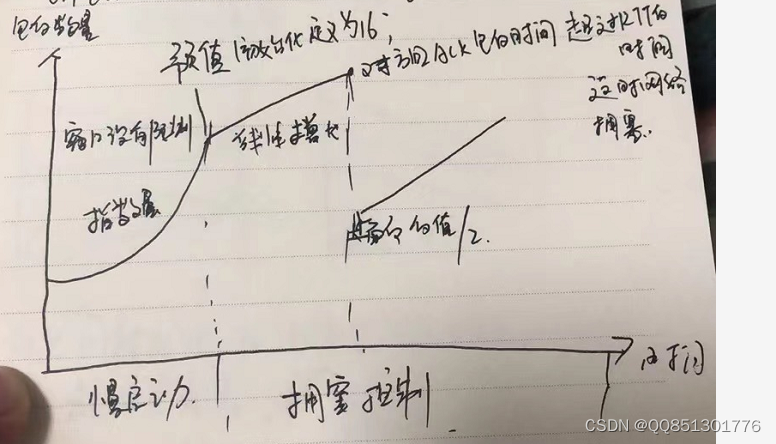 包的数量
预值 初始化定义为16;
对方回ACK包的时间 超过RTT的
时间
这时网络
拥塞.
窗口没有限制
线性增长
指数
当前的值/2.
时间
慢启动
拥塞控制
CSDN @QQ851301776